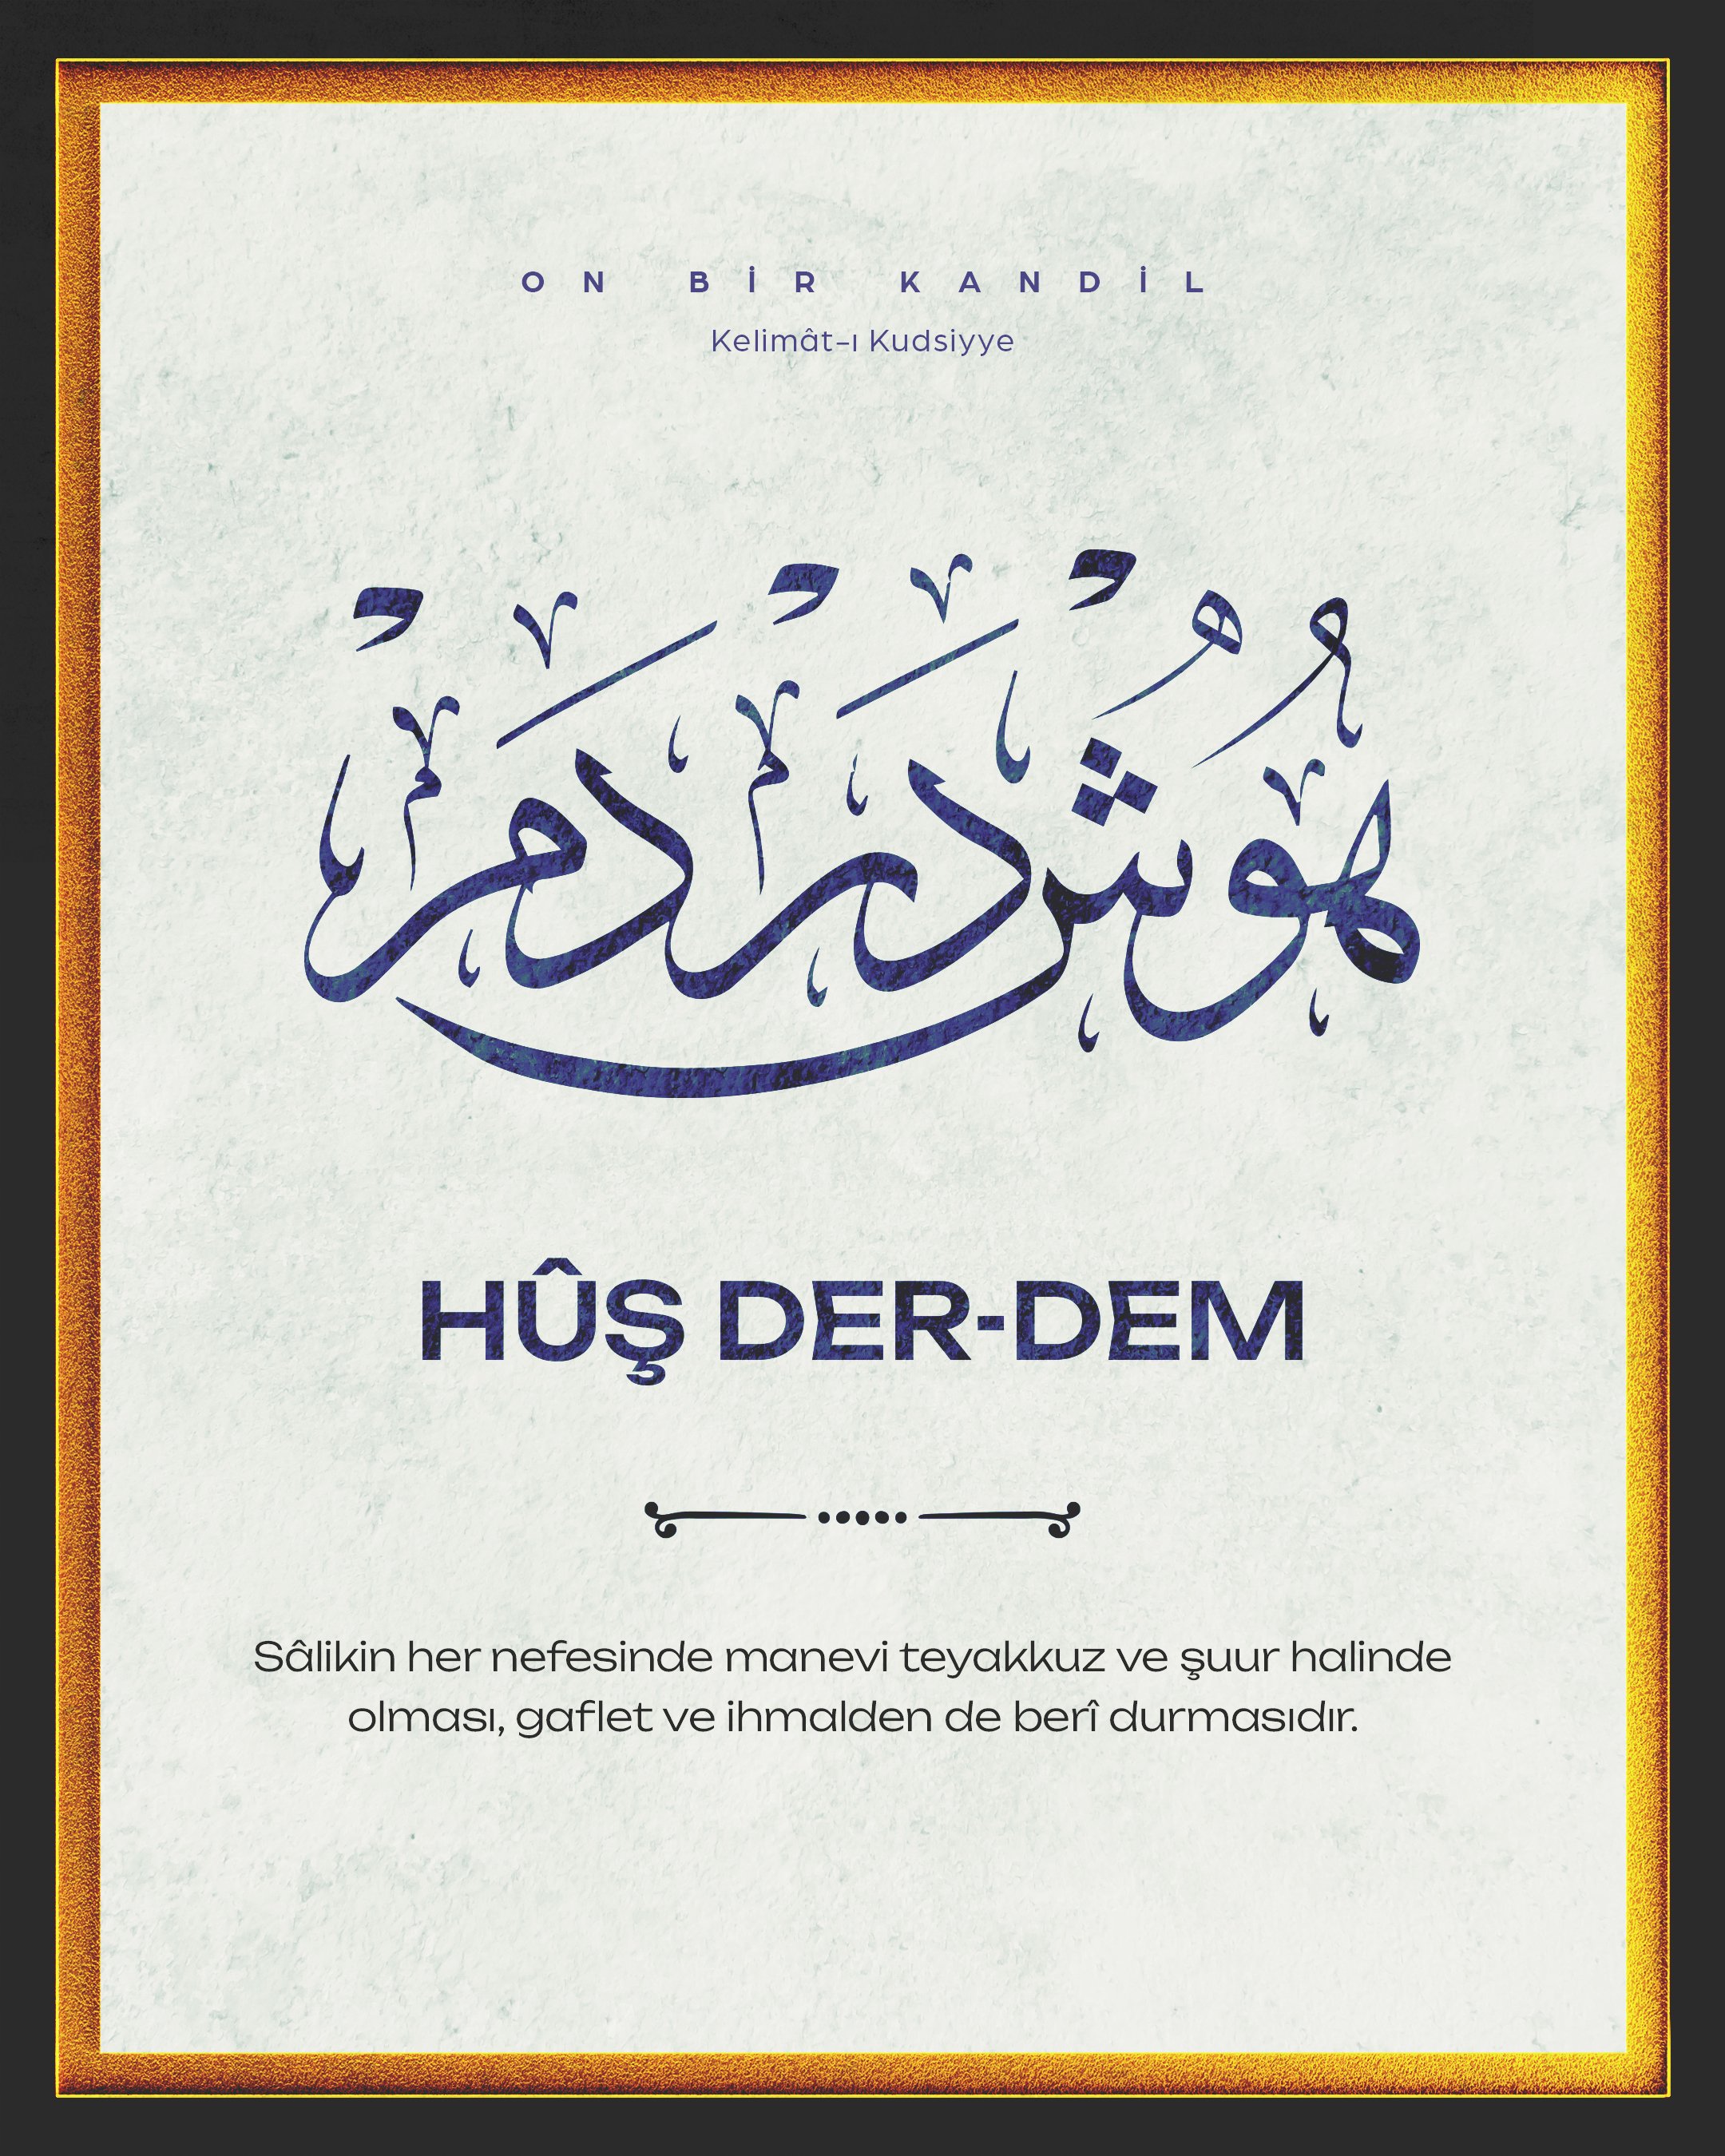 ON BİR KANDİL
Kelimât-ı Kudsiyye
هُوشْ دَرْ دَمْ
HÛŞ DER-DEM
Sâlikin her nefesinde manevi teyakkuz ve şuur halinde
olması, gaflet ve ihmalden de berî durmasıdır.